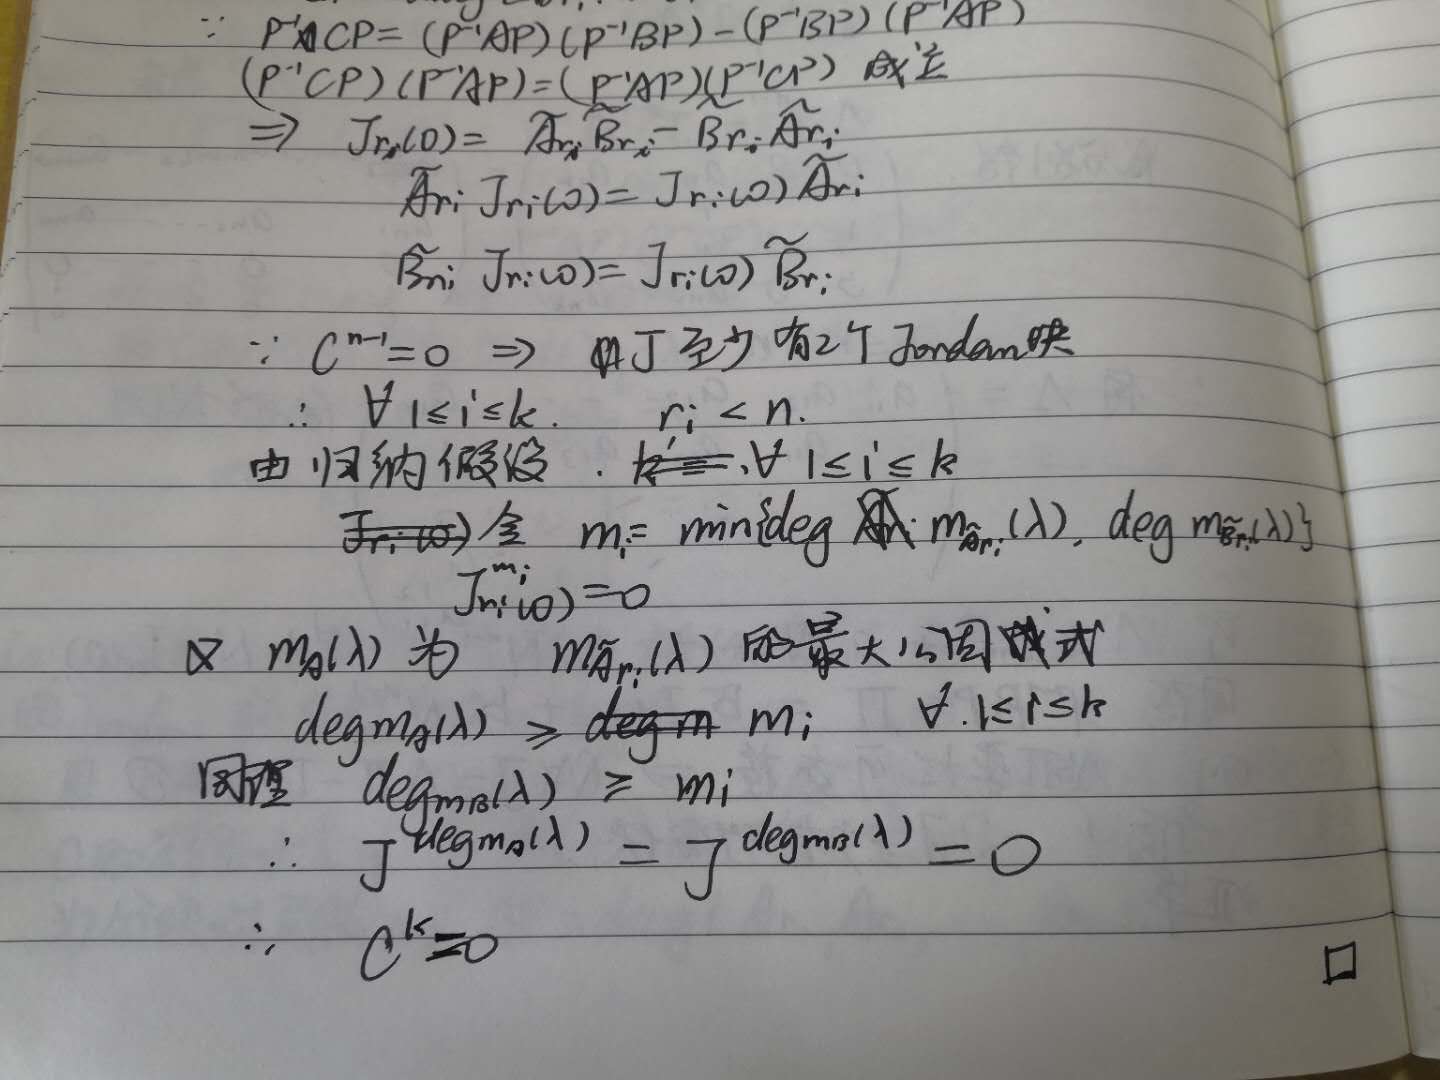 ∵ P⁻¹CP = (P⁻¹AP)(P⁻¹BP) − (P⁻¹BP)(P⁻¹AP)
(P⁻¹CP)(P⁻¹AP) = (P⁻¹AP)(P⁻¹CP) 成立
⇒ J_{r_i}(0) = Ã_{r_i} B̃_{r_i} − B̃_{r_i} Ã_{r_i}
Ã_{r_i} J_{r_i}(0) = J_{r_i}(0) Ã_{r_i}
B̃_{r_i} J_{r_i}(0) = J_{r_i}(0) B̃_{r_i}
∵ C^{n-1} = 0 ⇒ J 至少有2个 Jordan块
∴ ∀ 1≤i≤k. r_i < n.
由归纳假设. ∀ 1≤i≤k
令 m_i = min{deg m_{Ã_{r_i}}(λ), deg m_{B̃_{r_i}}(λ)}
J_{r_i}^{m_i}(0) = 0
又 m_A(λ) 为 m_{Ã_{r_i}}(λ) 的最大公因式
deg m_A(λ) ≥ m_i ∀. 1≤i≤k
同理 deg m_B(λ) ≥ m_i
∴ J^{deg m_A(λ)} = J^{deg m_B(λ)} = 0
∴ C^k = 0
□